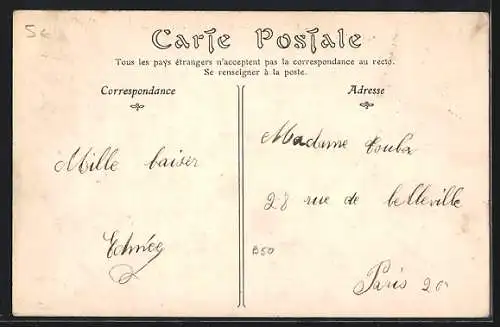 5e
Carte Postale
Tous les pays étrangers n'acceptent pas la correspondance au recto.
Se renseigner à la poste.
Correspondance
Mille baiser
Adresse
Madame
28 rue de belleville
B50
Paris 20